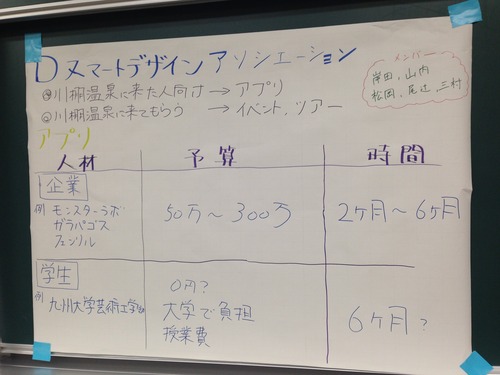 D スマートデザインアソシエーション
メンバー
岸田、山内
松岡、尾辻、三村
川棚温泉に来た人向け → アプリ
川棚温泉に来てもらう → イベント、ツアー
アプリ
人材 予算 時間
企業
例 モンスターラボ
ガラパゴス
フェンリル
50万〜300万
2ヶ月〜6ヶ月
学生
例 九州大学芸術工学
0円?
大学で負担
授業費
6ヶ月?